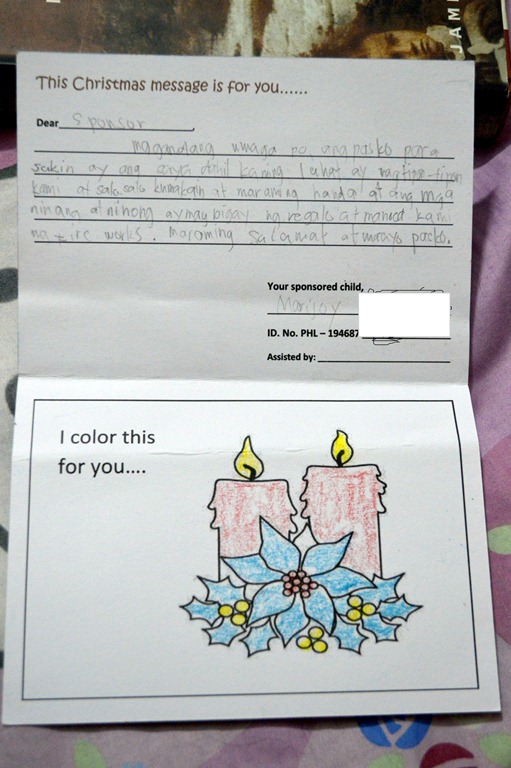 JAMI
This Christmas message is for you......
Dear Sponsor,
magandang umaga po, ang pasko para
sakin ay ang saya dahil kaming lahat ay nagtipon-tipon
kami at salo salo kumakain at maraming handa at ang mga
ninang at ninong ay may bigay ng regalo at manood kami
ng fire works. maraming salamat at maayo pasko.
Your sponsored child,
Marijoy
ID. No. PHL – 194687
Assisted by:
I color this
for you....